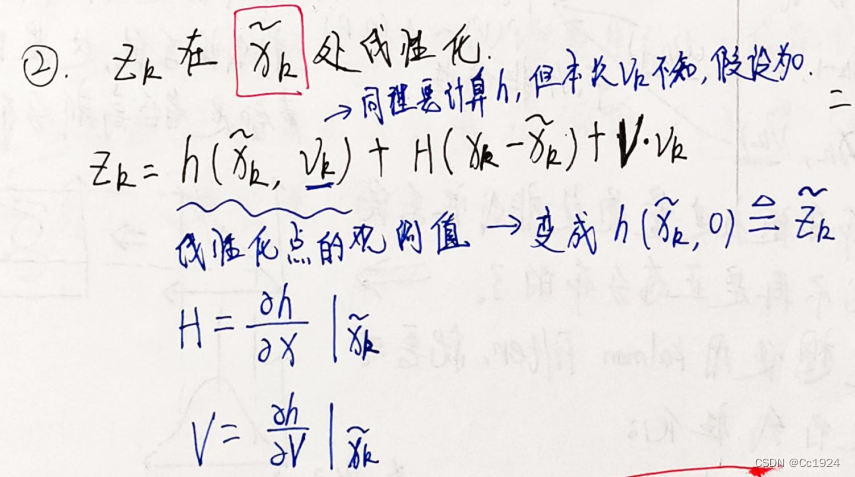 ②. Zₖ 在 x̃ₖ 处线性化.
→ 同理要计算h, 但本次Vₖ不知, 假设为0.
=
Zₖ = h(x̃ₖ, Vₖ) + H(xₖ - x̃ₖ) + V·Vₖ
线性化点的观测值 → 变成 h(x̃ₖ, 0) ≜ z̃ₖ
H = ∂h/∂x | x̃ₖ
V = ∂h/∂V | x̃ₖ
CSDN @Cc1924